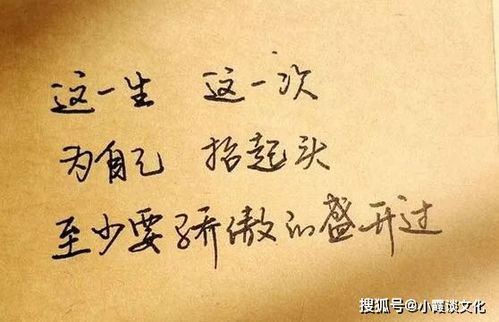 这一生 这一次
为自己 抬起头
至少要骄傲的盛开过
搜狐号@小霞谈文化